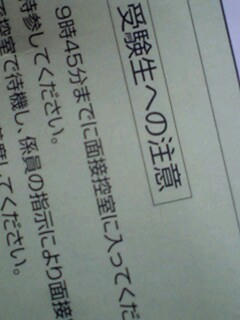 受験生への注意
9時45分までに面接控室に入ってくだ
持参してください。
控室で待機し、係員の指示により面接
してください。